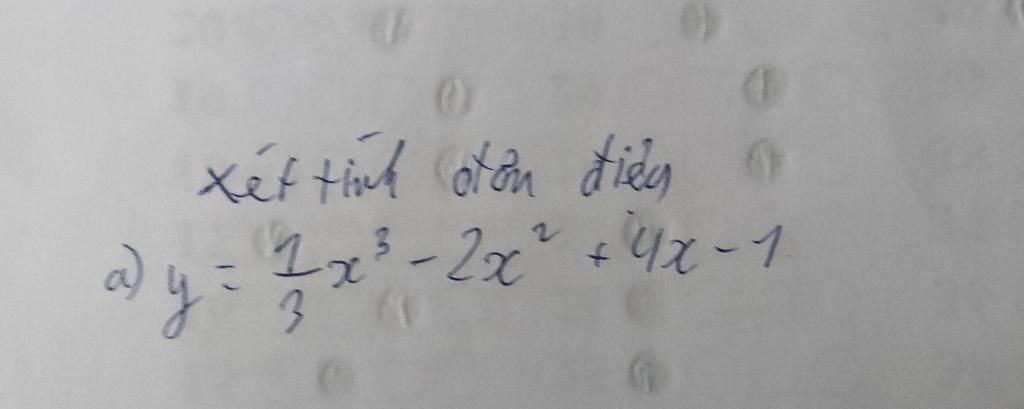 xét tính đơn điệu
a) y = 1/3 x³ - 2x² + 4x - 1